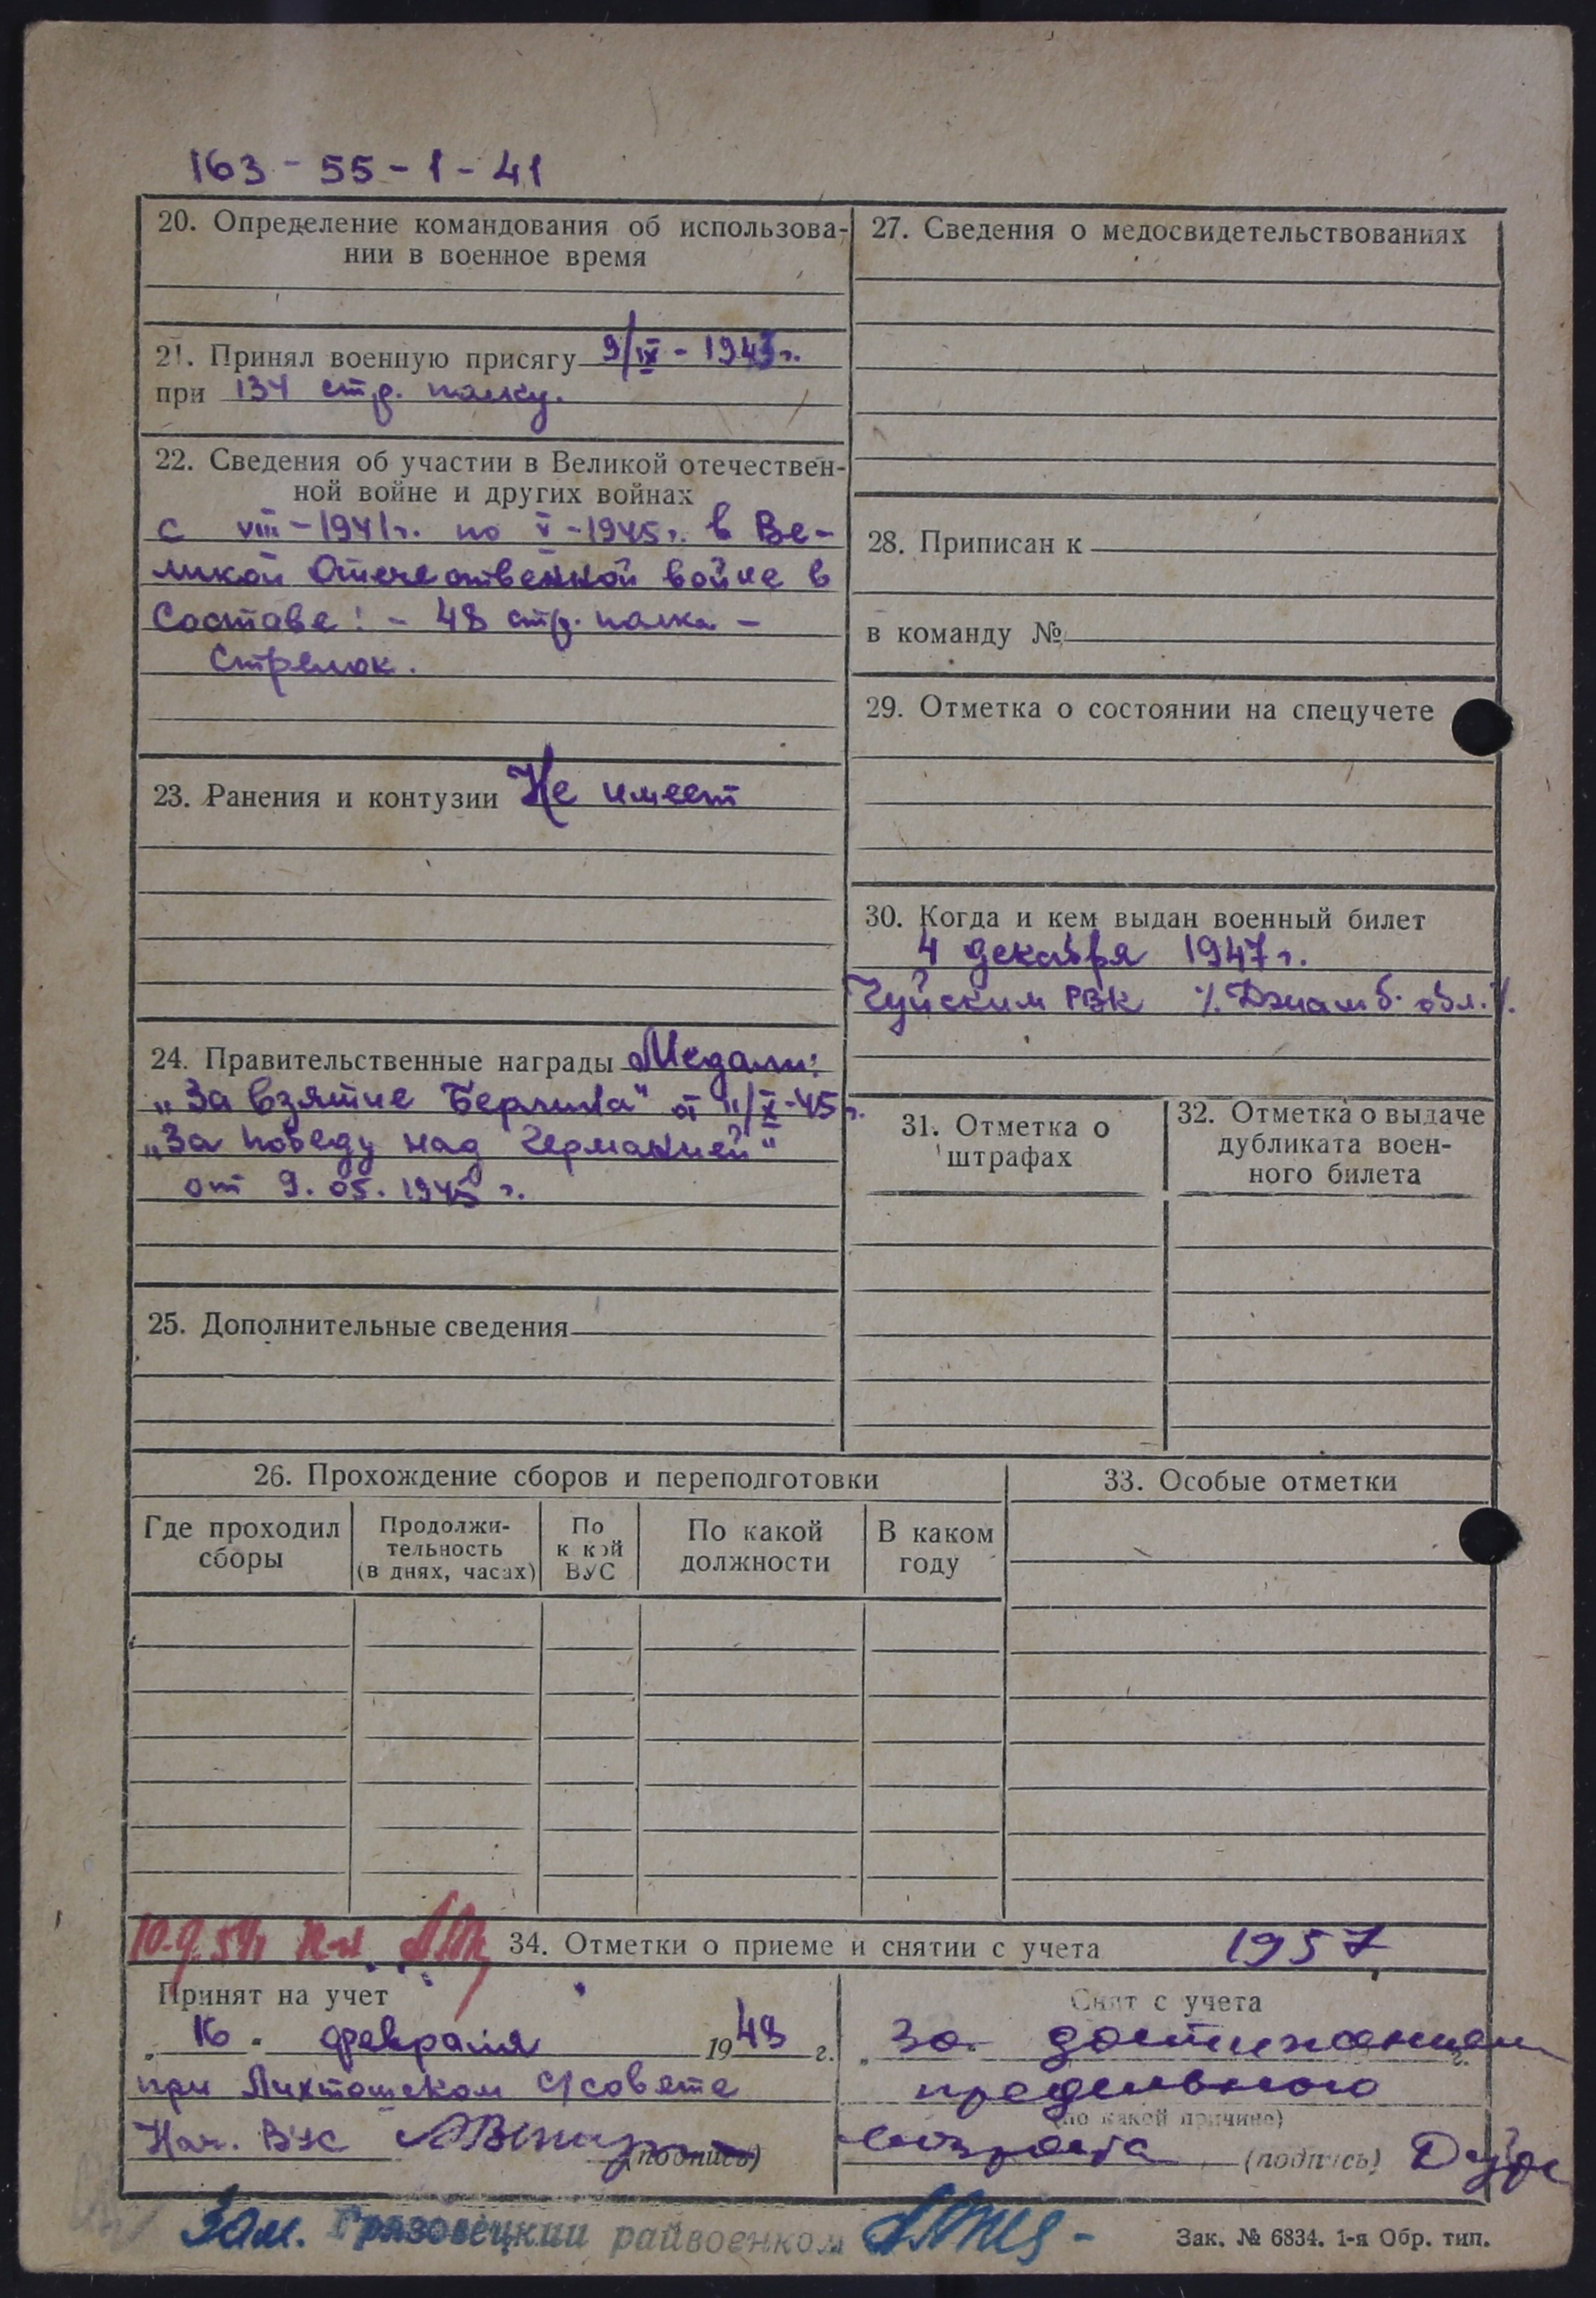 163 - 55 - 1 - 41
20. Определение командования об использова-
нии в военное время
21. Принял военную присягу 9/IX - 1943 г.
при 134 стр. полку.
22. Сведения об участии в Великой отечествен-
ной войне и других войнах
с VIII - 1941 г. по V - 1945 г. в Ве-
ликой Отечественной войне в
Составе: - 48 стр. полка -
Стрелок.
23. Ранения и контузии Не имеет
24. Правительственные награды Медали:
„За взятие Берлина" от 11/X-45 г.
„За победу над Германией"
от 9. 05. 1945 г.
25. Дополнительные сведения
27. Сведения о медосвидетельствованиях
28. Приписан к
в команду №
29. Отметка о состоянии на спецучете
30. Когда и кем выдан военный билет
4 декабря 1947 г.
Чуйским РВК /. Джамб. обл. /.
31. Отметка о
штрафах
32. Отметка о выдаче
дубликата воен-
ного билета
26. Прохождение сборов и переподготовки
Где проходил
сборы
Продолжи-
тельность
(в днях, часах)
По
к кой
ВУС
По какой
должности
В каком
году
33. Особые отметки
34. Отметки о приеме и снятии с учета 1957
Принят на учет
„ 16 " февраля 1948 г.
при Лихтошском с/совете
Нач. ВУС (подпись)
Снят с учета
за достижением
предельного
(по какой причине)
возраста (подпись)
Зам. Грязовецкий райвоенком
Зак. № 6834. 1-я Обр. тип.